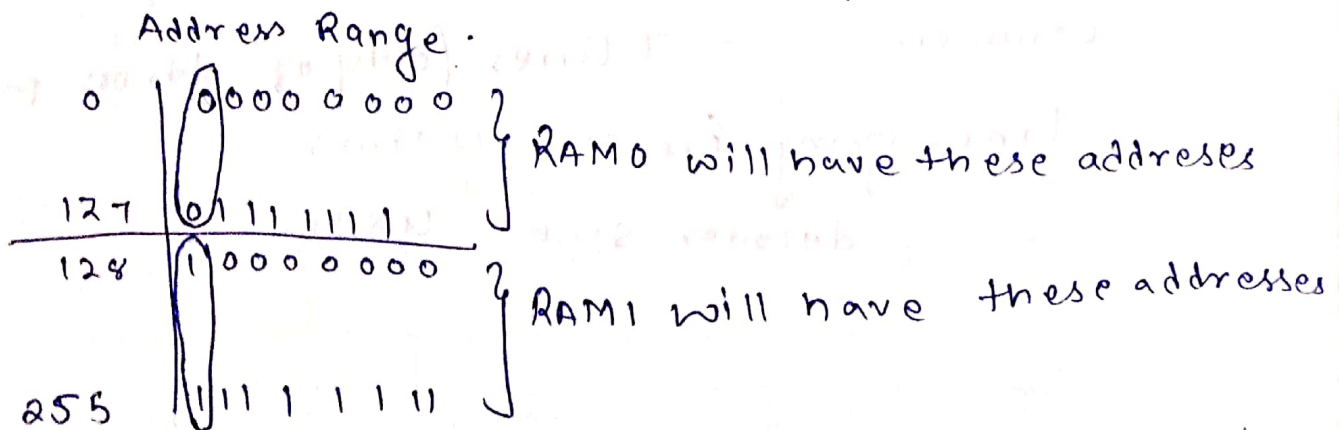 Address Range.
0 0000 0000 } RAM0 will have these addreses
127 01111111
128 10000000 } RAM1 will have these addresses
255 11111111